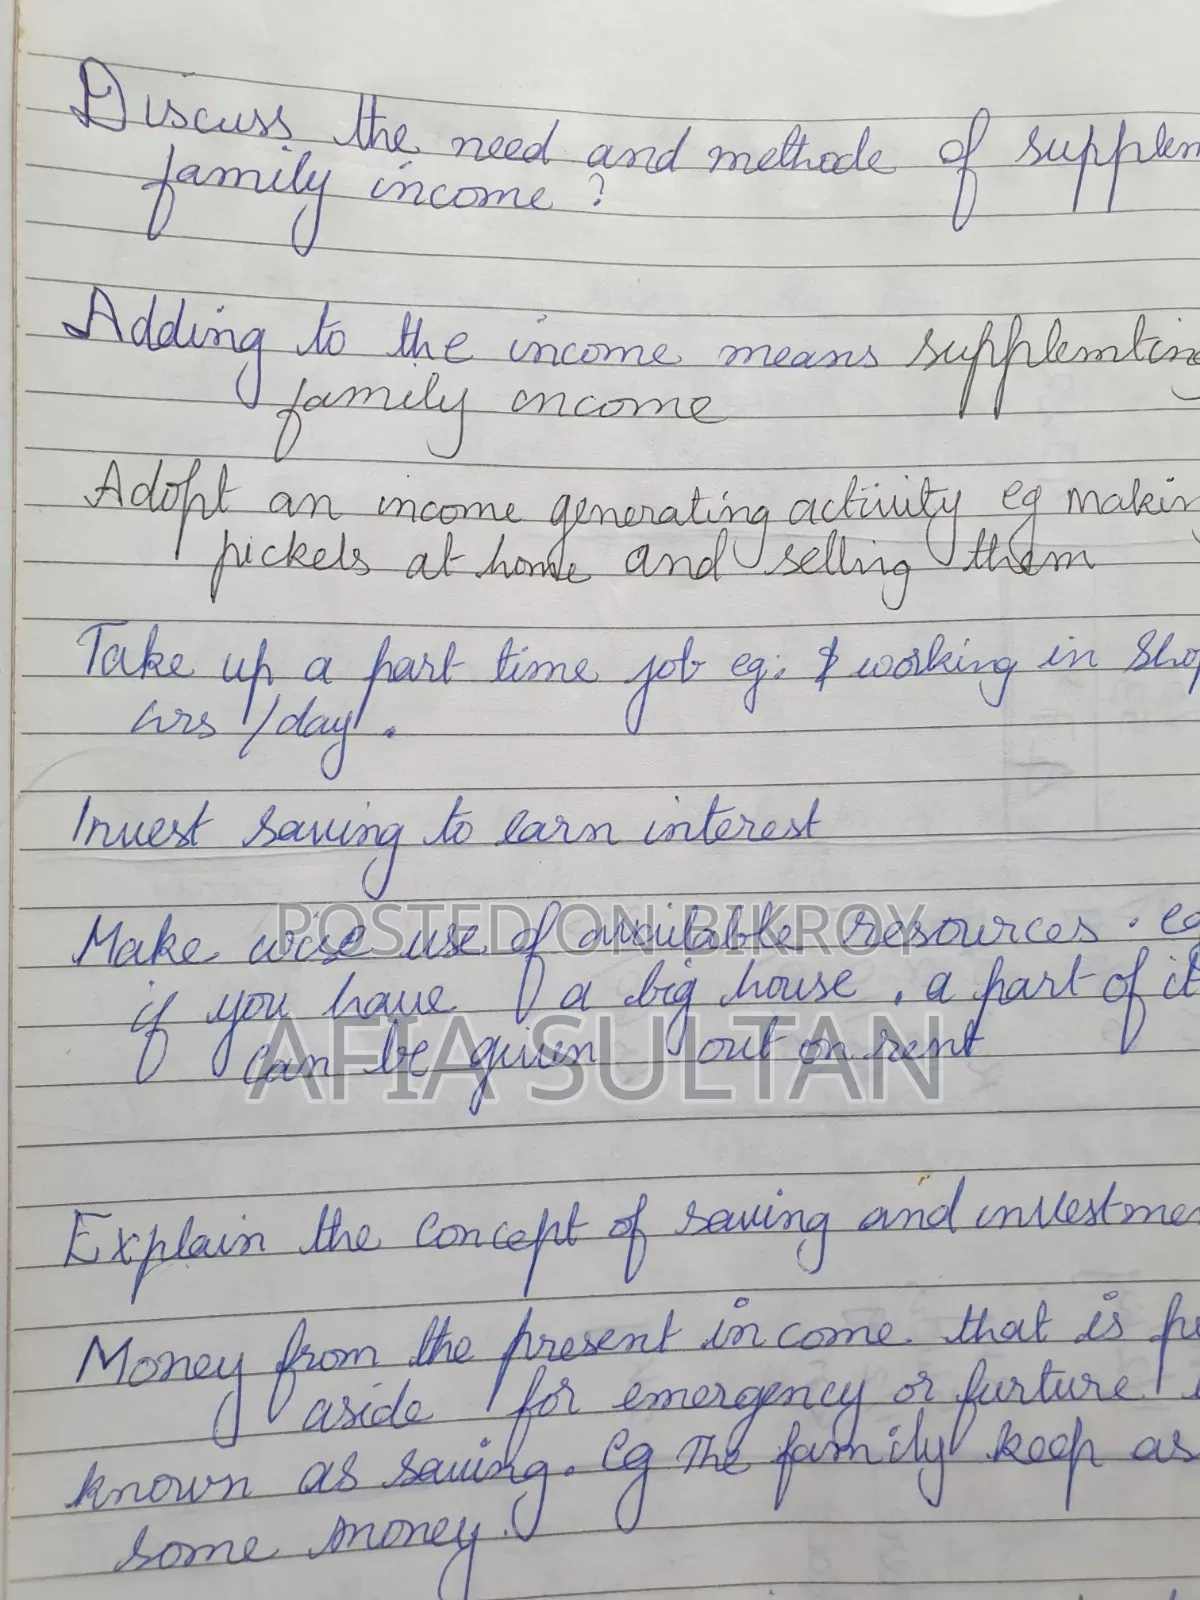 Discuss the need and methode of supplem
family income ?
Adding to the income means supplemting
family income
Adopt an income generating activity eg making
pickels at home and selling them
Take up a part time job eg: working in shop
hrs /day.
Invest saving to earn interest
Make wise use of available resources. eg
if you have a big house, a part of it
can be given out on rent
POSTED ON BIKROY
AFIA SULTAN
Explain the concept of saving and investmen
Money from the present income that is p
aside for emergency or furture
known as saving. eg The family keep as
some money.